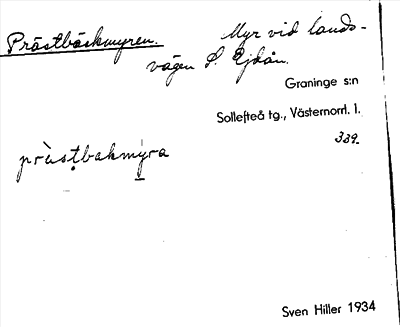 Prästbäckmyren. Myr vid lands-
vägen S. Ejdån.
Graninge s:n
Sollefteå tg., Västernorrl. l.
339.
prùstbakmýra
Sven Hiller 1934